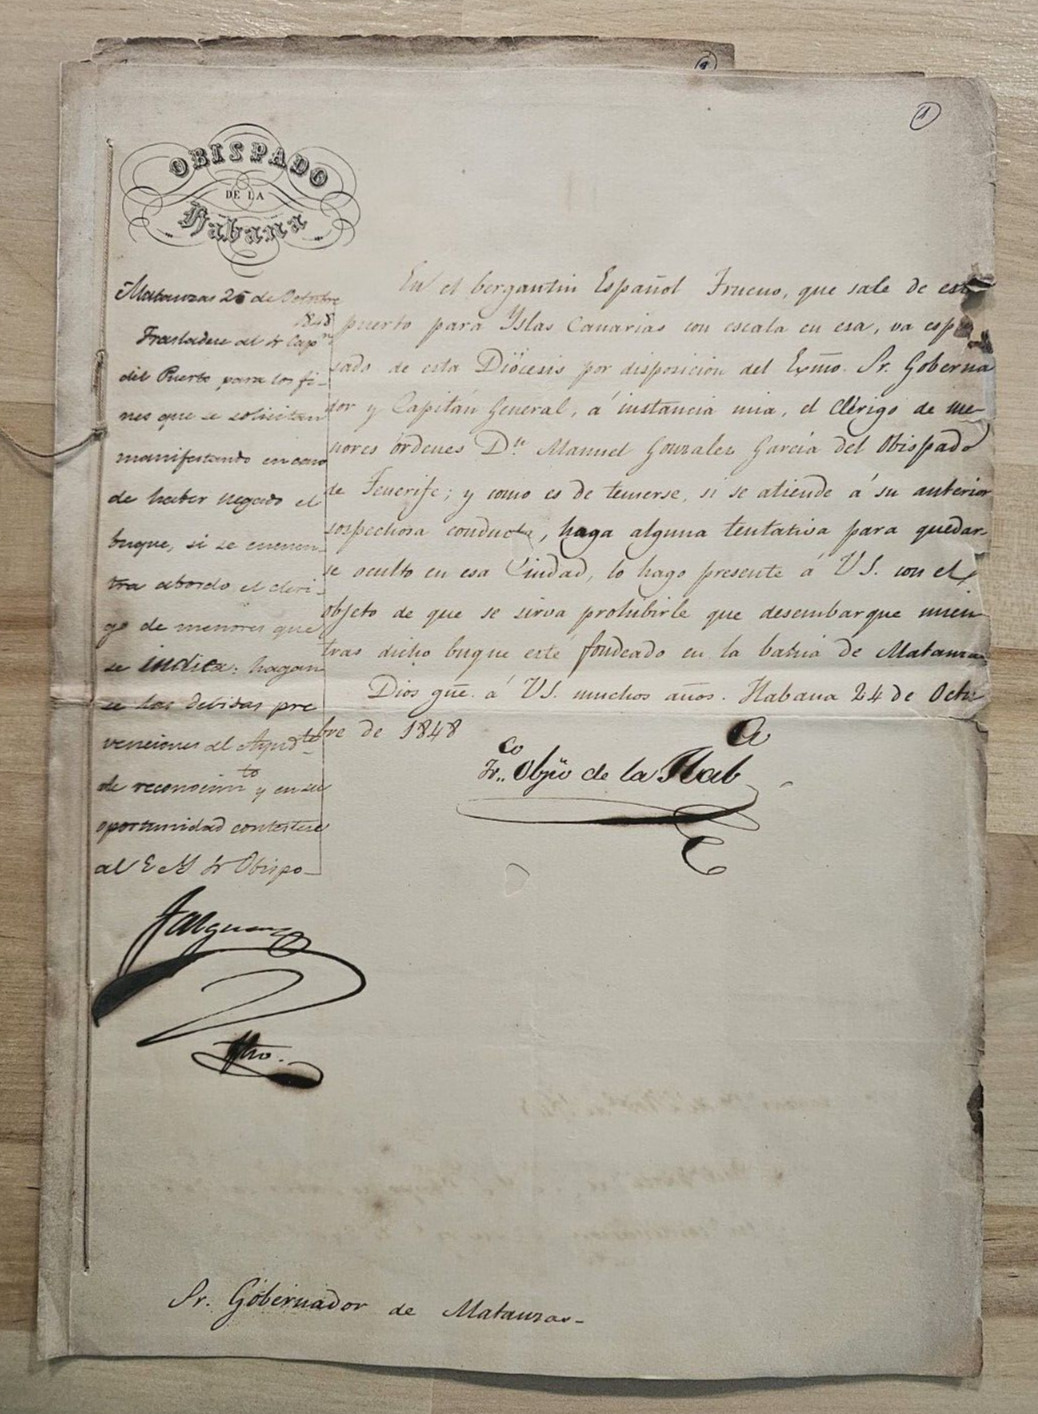 1
1
OBISPADO
DE LA
Habana
Matanzas 25 de Octubre
1848
Trasladese al Sr Capn
del Puerto, para los fi-
nes que se solicitan
manifestando en caso
de haber llegado el
buque, si se encuen-
tra abordo el cleri-
go de menores que
se indica: hagan
se las debidas pre
venciones al Ayudte
de reconocimto y en su
oportunidad contestese
al E Y Sr Obispo
En el bergantin Español Trueno, que sale de este
puerto para Yslas Canarias con escala en esa, va espul
sado de esta Diócesis por disposicion del Exmo. Sr. Goberna
dor y Capitan General, á instancia mia, el Clérigo de me-
nores órdenes Dn. Manuel Gonzalez Garcia del Obispado
de Tenerife; y como es de temerse, si se atiende á su anterior
sospechosa conducta, haga alguna tentativa para quedar-
se oculto en esa Ciudad, lo hago presente á V.S. con el
objeto de que se sirva prohibirle que desembarque mien
tras dicho buque esté fondeado en la bahia de Matanzas
Dios gue. á V.S. muchos años. Habana 24 de Octu
bre de 1848
Fr. Obpo de la Hab
Sr. Gobernador de Matanzas-